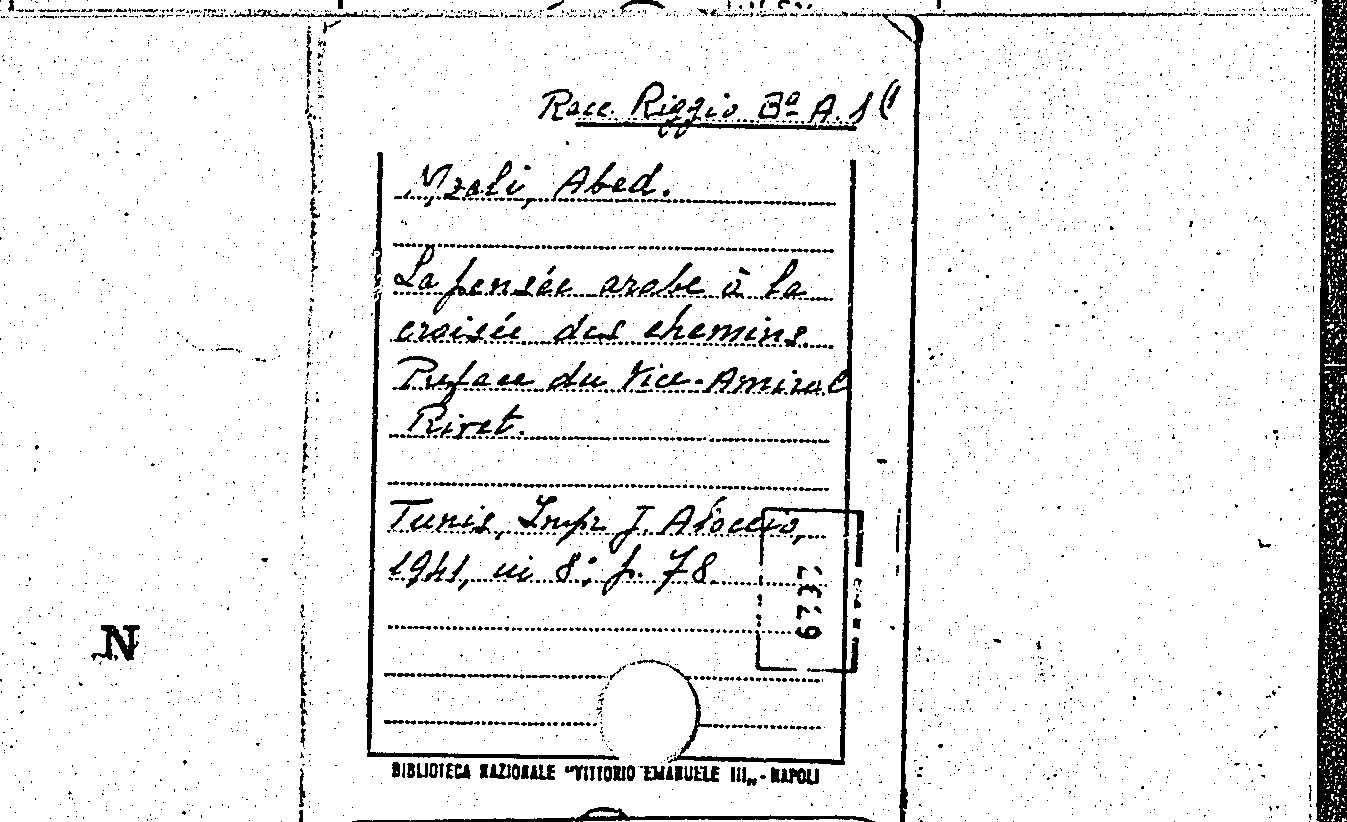 Racc. Riggio Bª A. 1 (1
Mzali, Abed.
La pensée arabe à la
croisée des chemins.
Preface du Vice-Amiral
Rivet.
Tunis, Impr. J. Aloccio,
1941, in 8°; p. 78
N
BIBLIOTECA NAZIONALE "VITTORIO EMANUELE III„ - NAPOLI